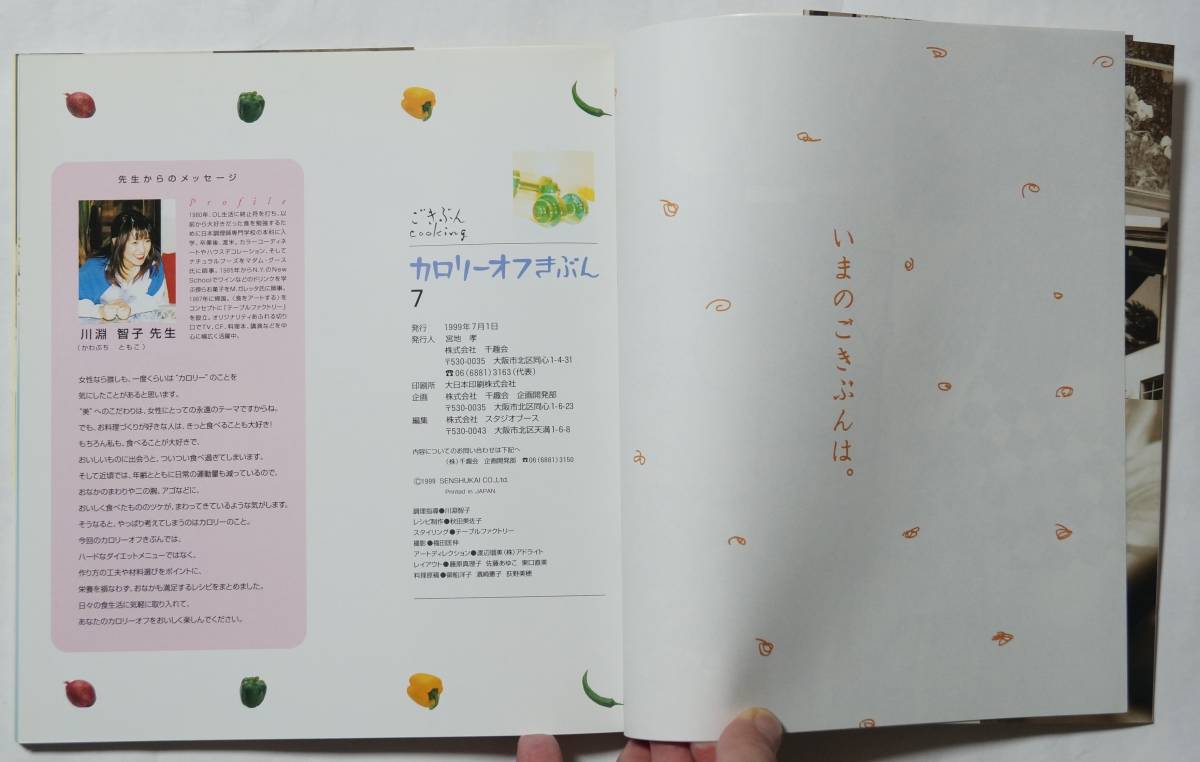 先生からのメッセージ
Profile
1980年、OL生活に終止符を打ち、以
前から大好きだった食を勉強するた
めに日本調理師専門学校の本科に入
学。卒業後、渡米。カラーコーディネ
ートやハウスデコレーション、そして
ナチュラルフーズをマダム・グース
氏に師事。1985年からN.Y.のNew
Schoolでワインなどのドリンクを学
ぶ傍らお菓子をM.ガレッタ氏に師事。
1987年に帰国。〈食をアートする〉を
コンセプトに「テーブルファクトリー」
を設立。オリジナリティあふれる切り
口でTV、CF、料理本、講演などを中
心に幅広く活躍中。
川淵 智子 先生
(かわぶち ともこ)
女性なら誰しも、一度くらいは“カロリー”のことを
気にしたことがあると思います。
“美”へのこだわりは、女性にとっての永遠のテーマですからね。
でも、お料理づくりが好きな人は、きっと食べることも大好き!
もちろん私も、食べることが大好きで、
おいしいものに出会うと、ついつい食べ過ぎてしまいます。
そして近頃では、年齢とともに日常の運動量も減っているので、
おなかのまわりや二の腕、アゴなどに、
おいしく食べたもののツケが、まわってきているような気がします。
そうなると、やっぱり考えてしまうのはカロリーのこと。
今回のカロリーオフきぶんでは、
ハードなダイエットメニューではなく、
作り方の工夫や材料選びをポイントに、
栄養を損なわず、おなかも満足するレシピをまとめました。
日々の食生活に気軽に取り入れて、
あなたのカロリーオフをおいしく楽しんでください。
ごきぶん
cooking
カロリーオフきぶん
7
発行 1999年7月1日
発行人 宮地 孝
株式会社 千趣会
〒530-0035 大阪市北区同心1-4-31
☎06(6881)3163(代表)
印刷所 大日本印刷株式会社
企画 株式会社 千趣会 企画開発部
〒530-0035 大阪市北区同心1-6-23
編集 株式会社 スタジオブース
〒530-0043 大阪市北区天満1-6-8
内容についてのお問い合わせは下記へ
(株)千趣会 企画開発部 ☎06(6881)3150
©1999 SENSHUKAI CO.,Ltd.
Printed in JAPAN
調理指導●川淵智子
レシピ制作●秋田美佐子
スタイリング●テーブルファクトリー
撮影●福田匡伸
アートディレクション●渡辺瑠美(株)アドライト
レイアウト●藤原真理子 佐藤あゆこ 東口直美
料理原稿●御船洋子 濱崎憲子 荻野美穂
いまのごきぶんは。